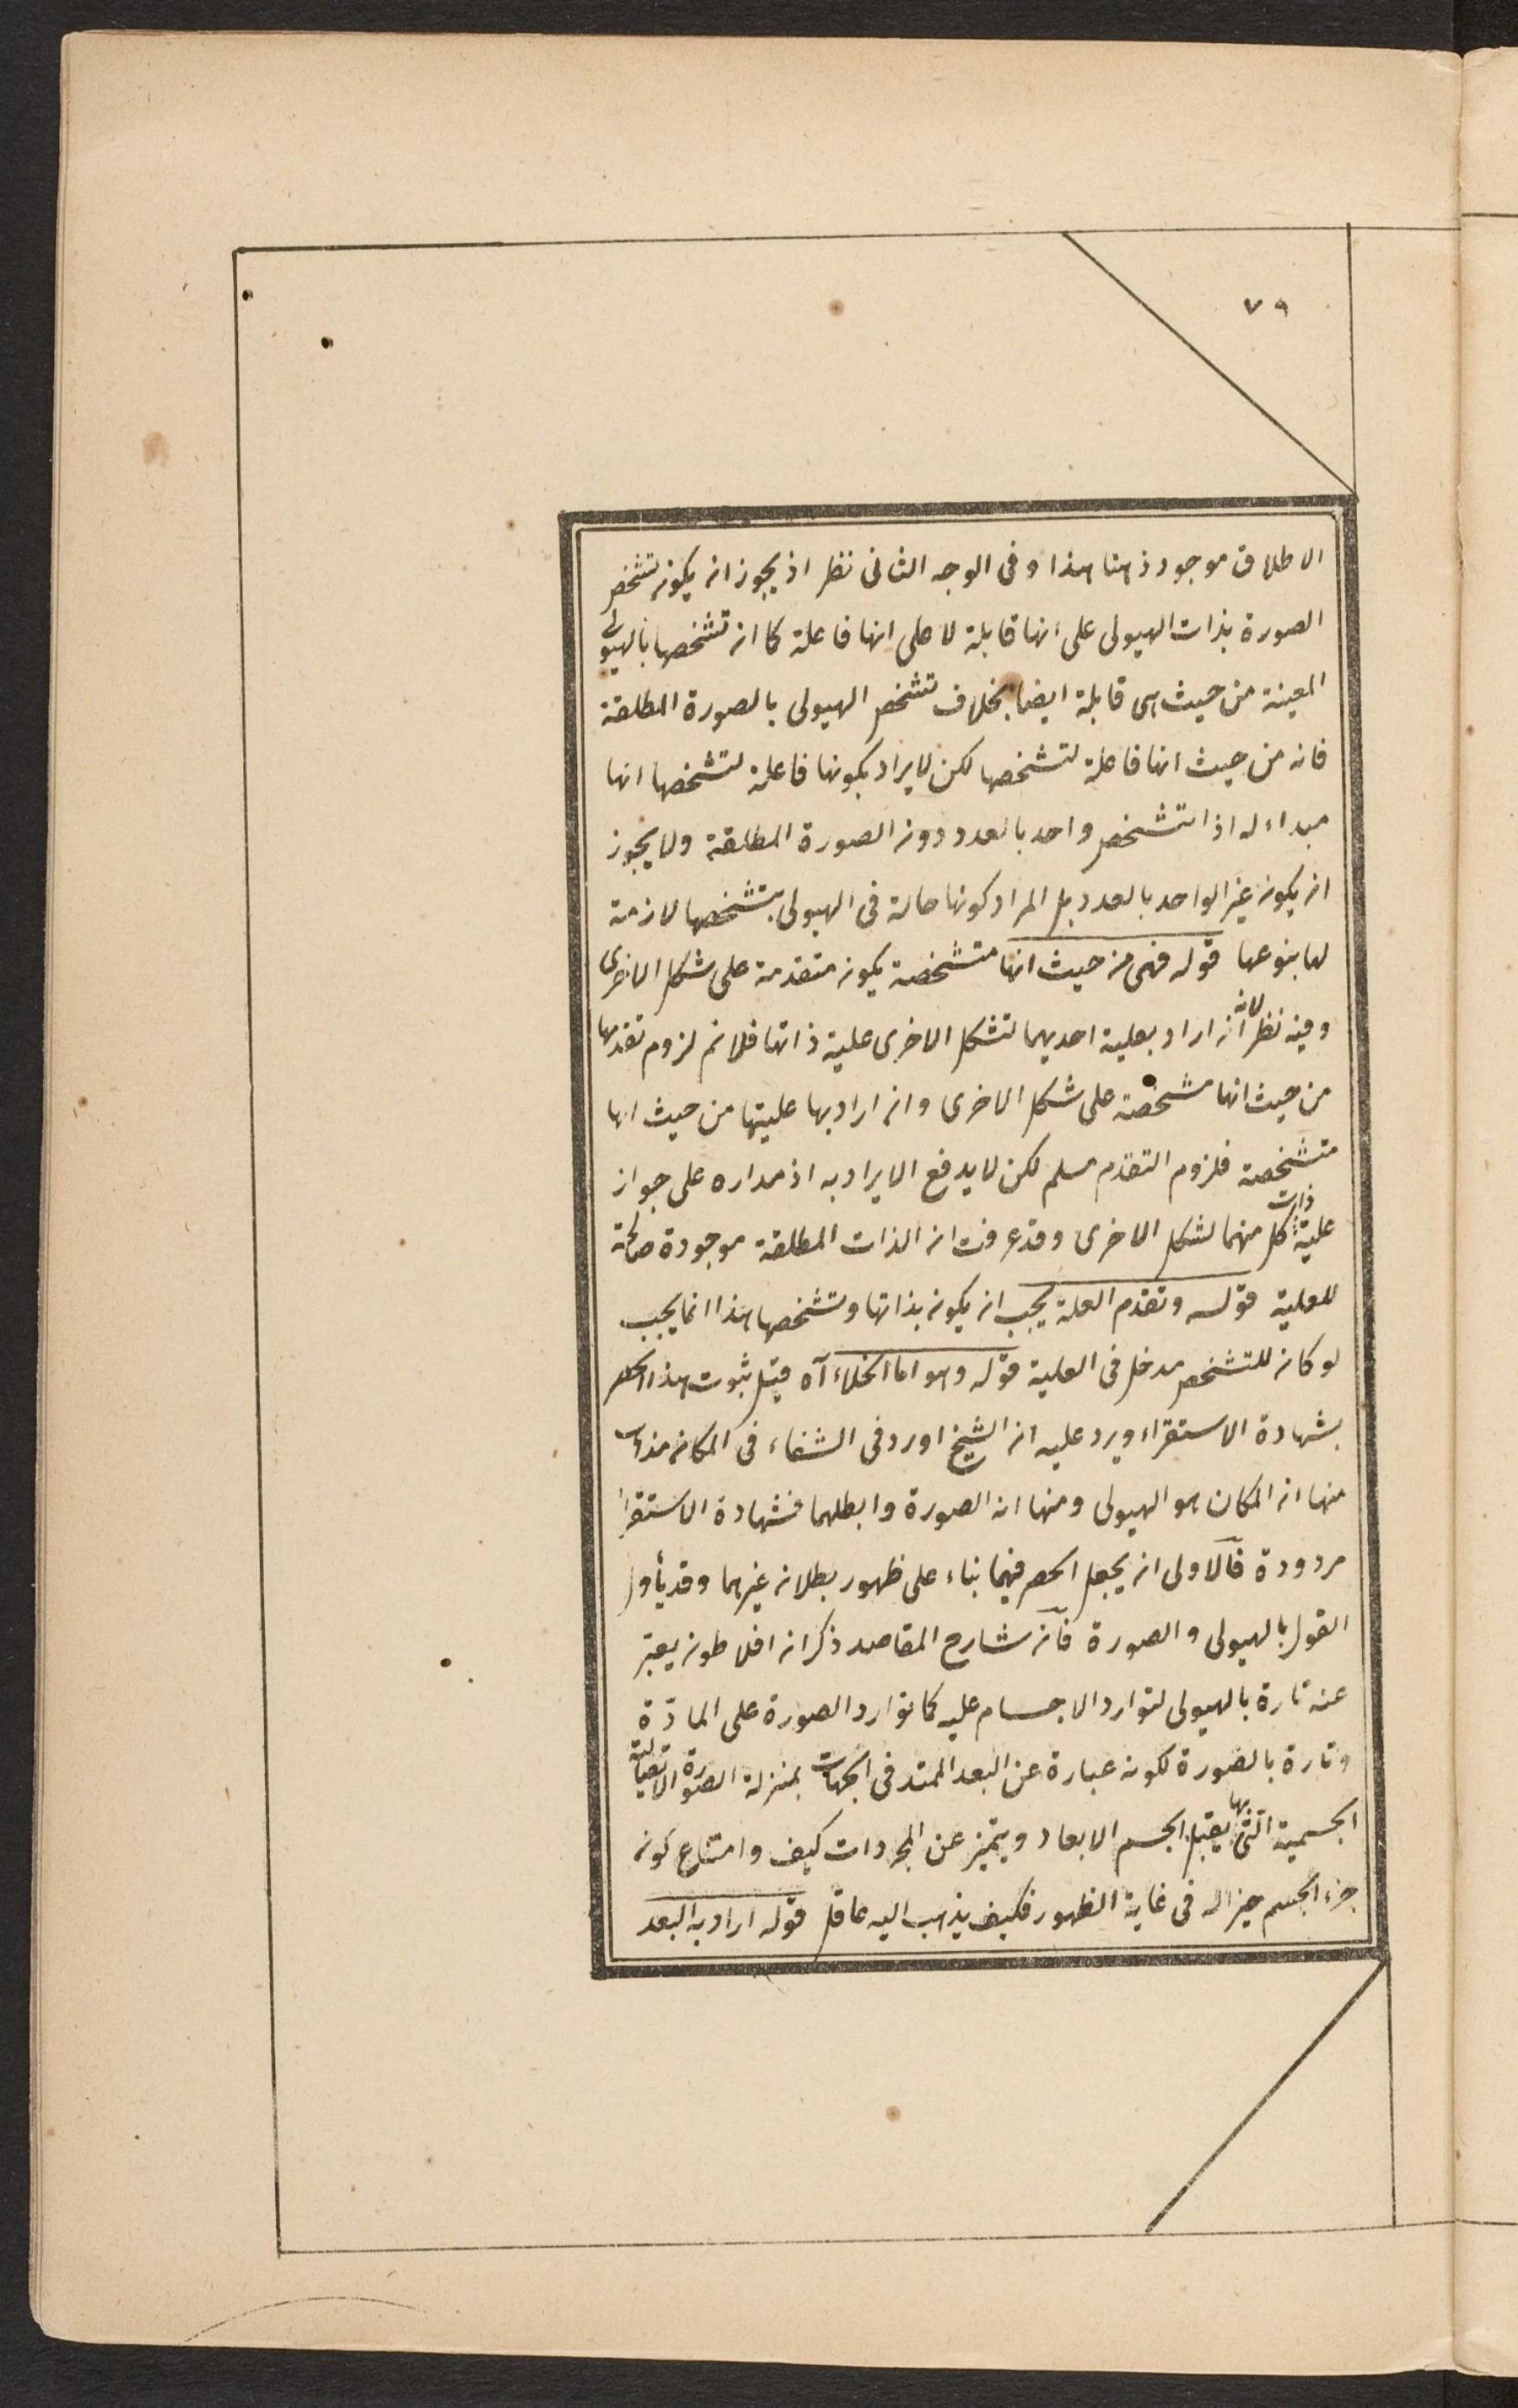 ٧٩
الاطلاق موجود ذهنا هذا وفى الوجه الثانى نظر اذ يجوز ان يكون تشخص
الصورة بذات الهيولى على انها قابلة لا على انها فاعلة كما ان تشخصها بالهيولى
المعينة من حيث هى قابلة ايضا بخلاف تشخص الهيولى بالصورة المطلقة
فانه من حيث انها فاعلة لتشخصها لكن لا يراد بكونها فاعلة لتشخصها انها
مبداء له اذ التشخص واحد بالعدد دون الصورة المطلقة ولا يجوز
ان يكون غير الواحد بالعدد بل المراد كونها حالة فى الهيولى بتشخصها لازمة
لها بنوعها قوله فهى من حيث انها متشخصة يكون متقدمة على شكل الاخرى
وفيه نظر لانه ان اراد بعلية احديهما لتشكل الاخرى علية ذاتها فلانم لزوم تقدمها
من حيث انها مشخصة على شكل الاخرى وان اراد بها عليتها من حيث انها
متشخصة فلزوم التقدم مسلم لكن لا يدفع الايراد به اذ مداره على جواز
علية ذات كل منهما لشكل الاخرى وقد عرفت ان الذات المطلقة موجودة صالحة
للعلية قوله وتقدم العلة يجب ان يكون بذاتها وتشخصها هذا انما يجب
لو كان للتشخص مدخل فى العلية قوله وهو اما الخلاء آه قيل ثبوت هذا الحصر
بشهادة الاستقراء ويرد عليه ان الشيخ اورد فى الشفاء فى المكان مذاهب
منها ان المكان هو الهيولى ومنها انه الصورة وابطلهما فشهادة الاستقراء
مردودة فالاولى ان يجعل الحصر فيهما بناء على ظهور بطلان غيرهما وقد يأول
القول بالهيولى والصورة فان شارح المقاصد ذكر ان افلاطون يعبر
عنه تارة بالهيولى لتوارد الاجسام عليه كما توارد الصورة على المادّة
وتارة بالصورة لكونه عبارة عن البعد الممتد فى الجهات بمنزلة الصورة الاتصالية
الجسمية التى بها يقبل الجسم الابعاد ويتميز عن المجردات كيف وامتناع كون
جزء الجسم حيزا له فى غاية الظهور فكيف يذهب اليه عاقل قوله اراد به البعد